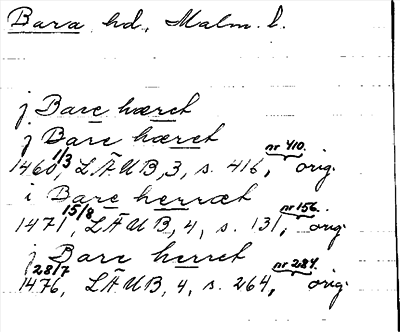 Bara hd., Malm. l.
j Bare hæret
j Bare hæret
1460 1/3, LÄUB, 3, s. 416, nr 410. orig.
i Bare herræt
1471 15/8, LÄUB, 4, s. 131, nr 156. orig.
j Bare herret
1476, 28/7 LÄUB, 4, s. 264, nr 284. orig.